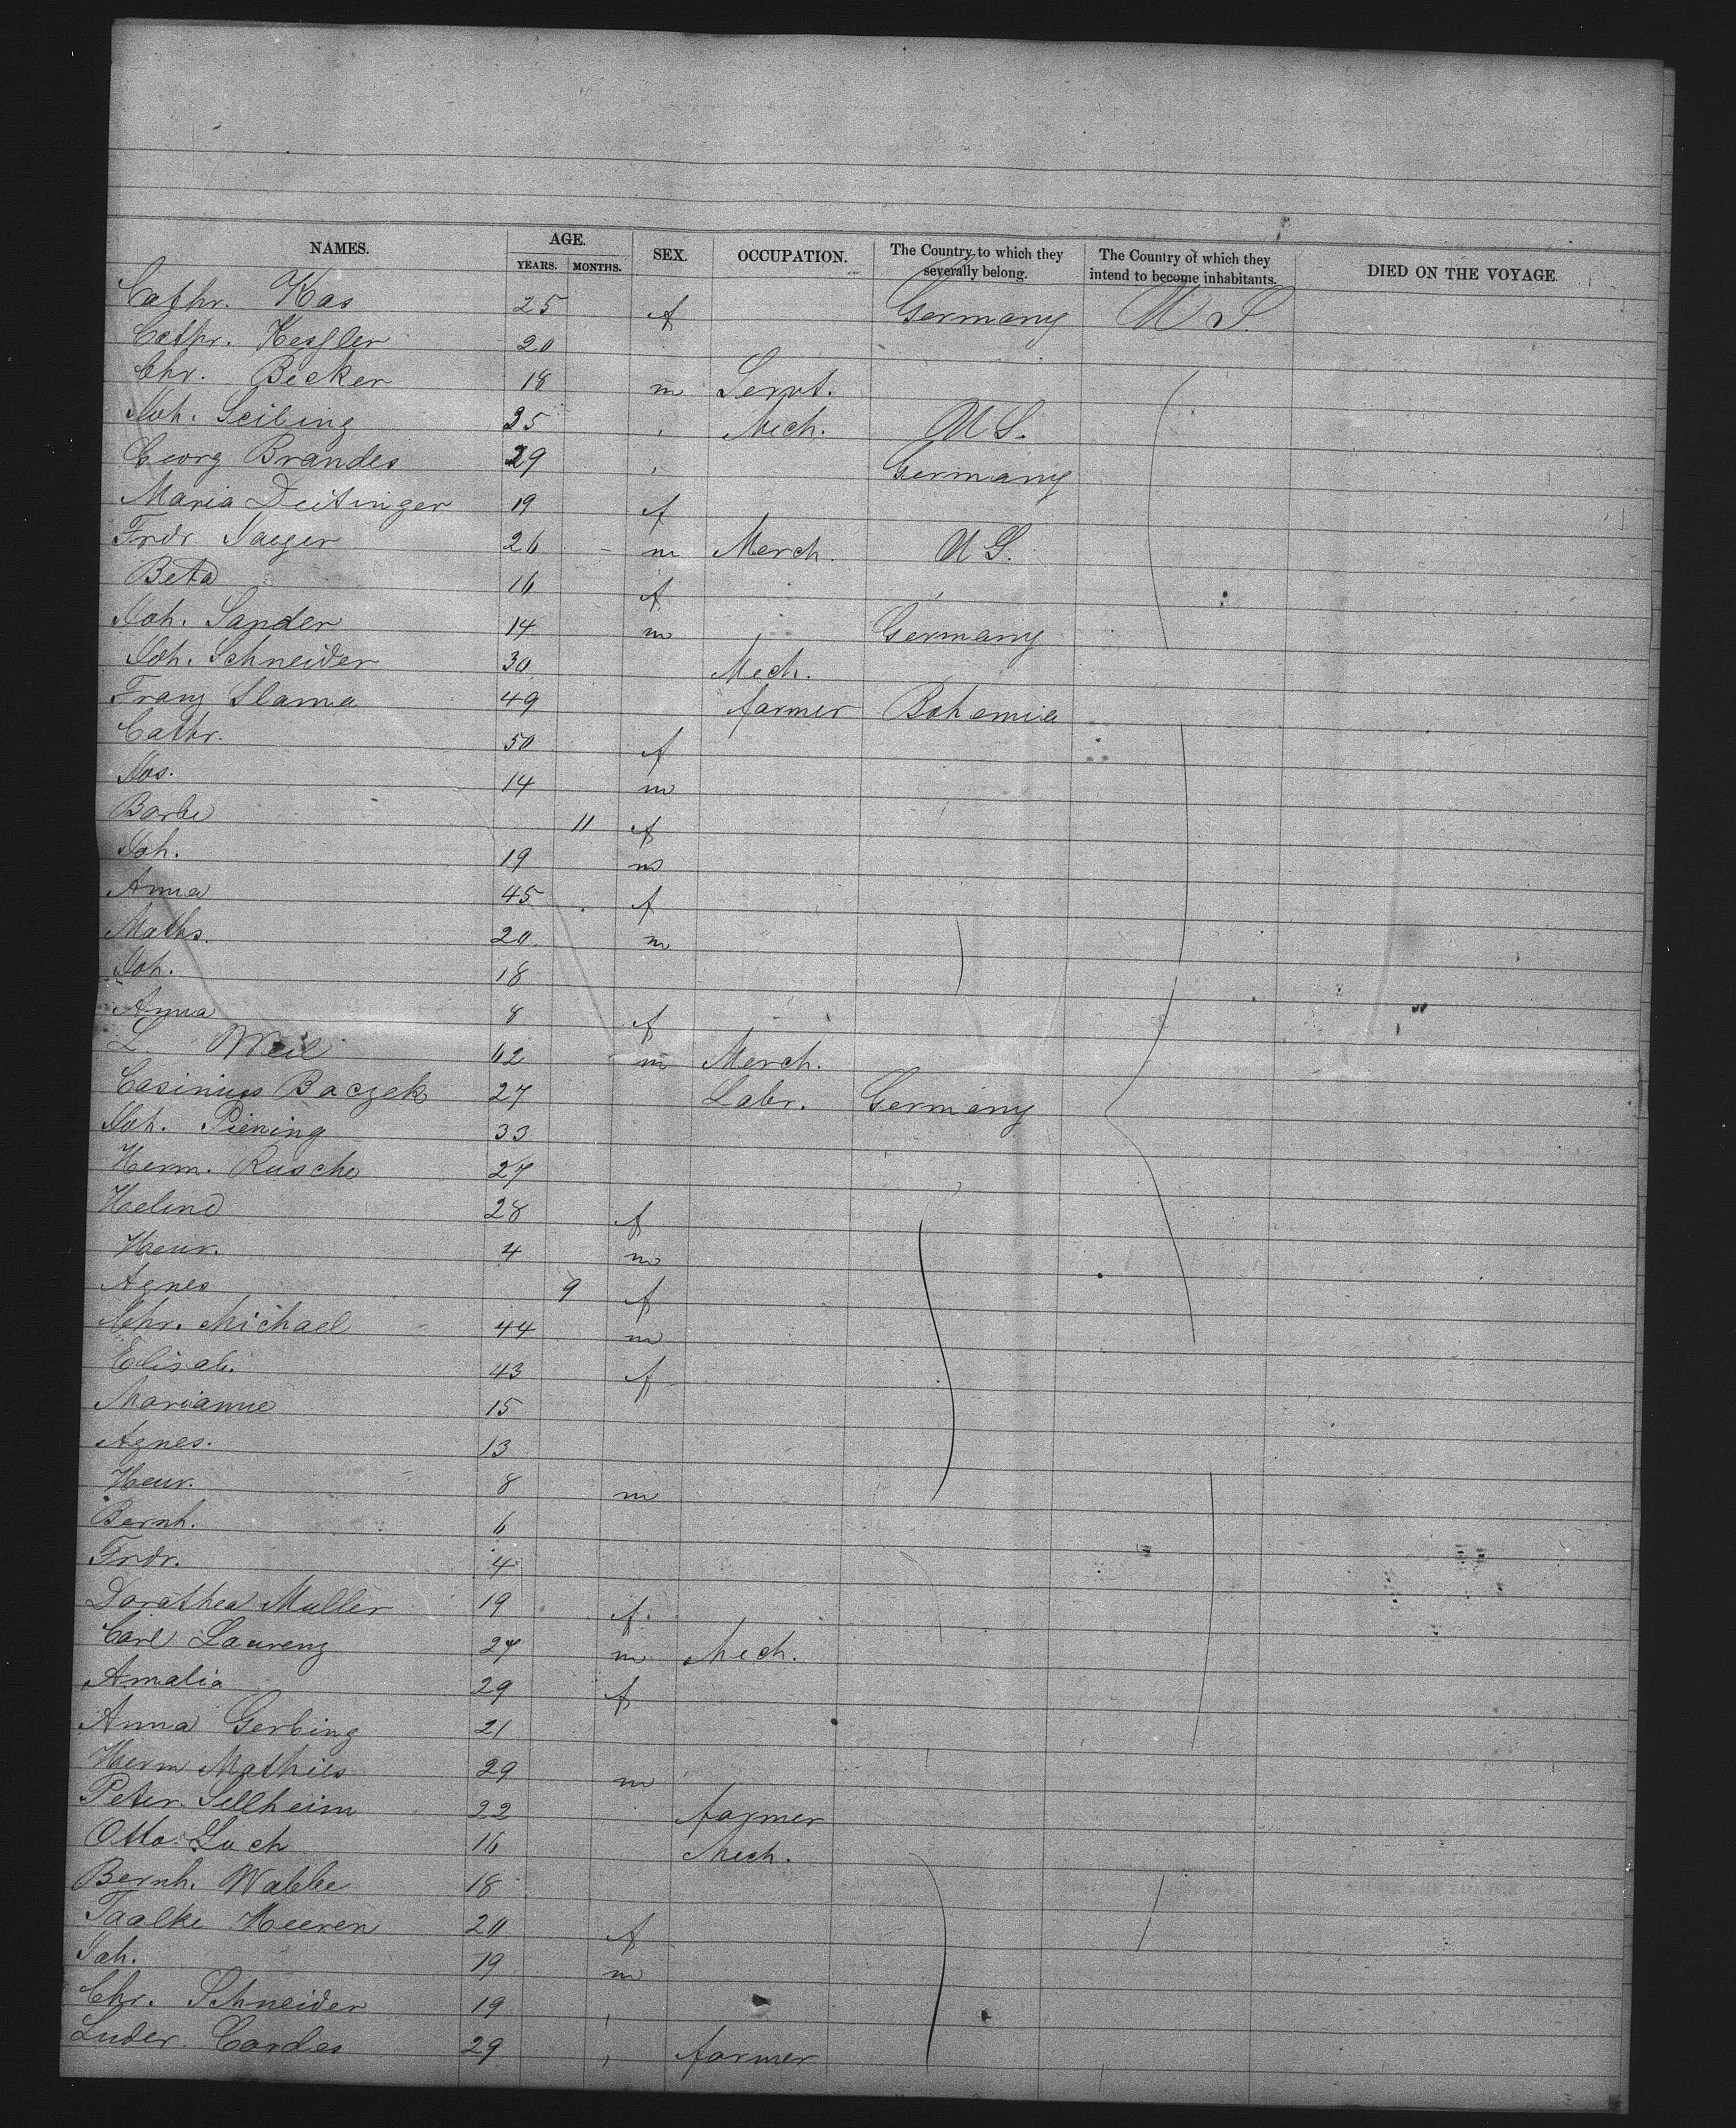 NAMES. AGE. SEX. OCCUPATION. The Country to which they severally belong. The Country of which they intend to become inhabitants. DIED ON THE VOYAGE.
YEARS. MONTHS.
Cathr. Kas 25 f Germany U S.
Cathr. Kessler 20
Chr. Becker 18 m Servt.
Joh. Seibing 25 Mech. U S.
Georg Brandes 29 Germany
Maria Deitinger 19 f
Frdr. Jaeger 26 m Merch. U S.
Beta 16 f
Joh. Sander 14 m Germany
Joh. Schneider 30 Mech.
Franz Slama 49 farmer Bohemia
Cathr. 50 f
Jos. 14 m
Barbe 11 f
Joh. 19 m
Anna 45 f
Maths. 20 m
Joh. 18
Anna 8 f
L Weil 62 m Merch.
Casimus Baczek 27 Labr. Germany
Joh. Piening 33
Herm. Rusche 27
Heline 28 f
Henr. 4 m
Agnes 9 f
Chr. Michael 44 m
Elisab. 43 f
Marianne 15
Agnes. 13
Henr. 8 m
Bernh. 6
Frdr. 4
Dorathea Muller 19 f.
Carl Laurenz 27 m Mech.
Amalia 29 f
Anna Gerbing 21
Herm Mathies 29 m
Peter Sellheim 22 farmer
Otto Luch 16 Mech.
Bernh. Wabbe 18
Taalke Heeren 20 f
Jah. 19 m
Chr. Schneider 19
Luder Cordes 29 farmer